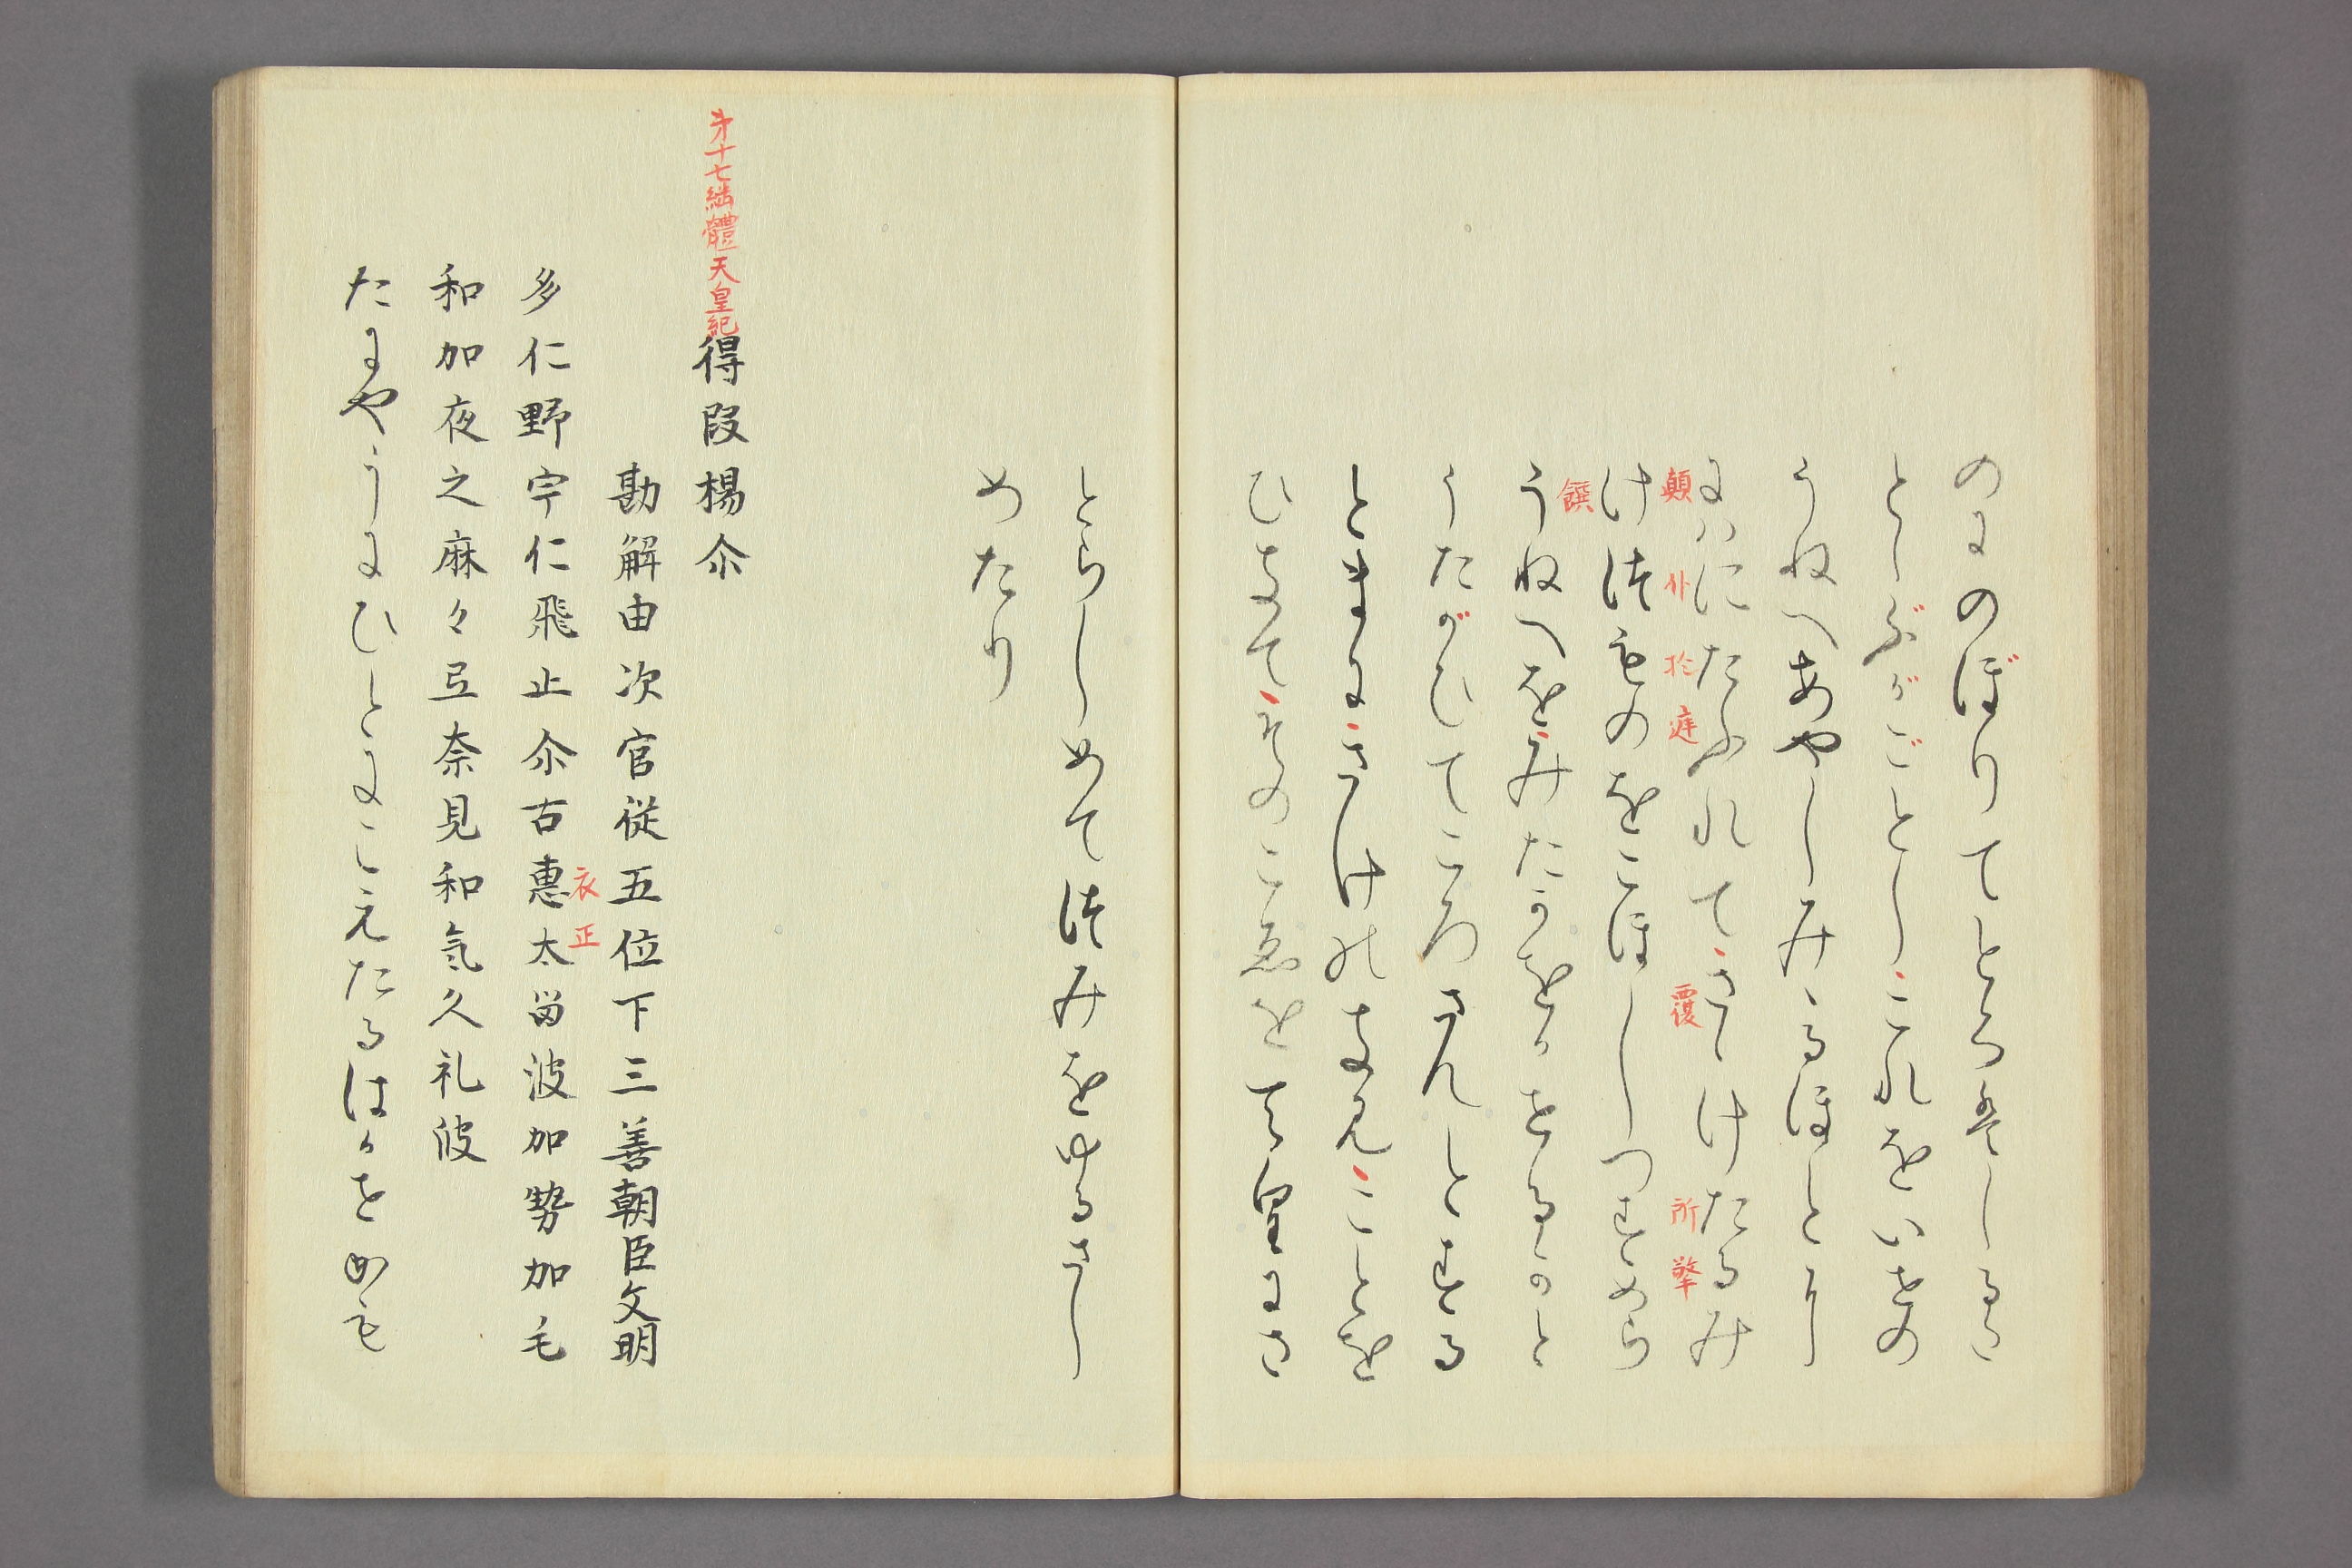 のにのぼりてとつらしるゝ
とゝぶがごとしこれをいせの
うねへあやしみゝるほとに
にハにたふれてさゝけたるみ
顛仆於庭覆所擎
け津ものをこほしつすめら
饌
うねへをみたりをかせるかと
うたがひてころさんとする
ときにさけのきみことを
ひきてそのこゑを天皇にさ
とらしめて津みをゆるさし
めたり
第十七継體天皇紀
得段楊尒
勘解由次官従五位下三善朝臣文明
多仁野宇仁飛止尒古恵太留波加勢加毛
衣正
和加夜之麻々弖奈見和氣久礼波
たにやうにひとにこえたるはかせかも